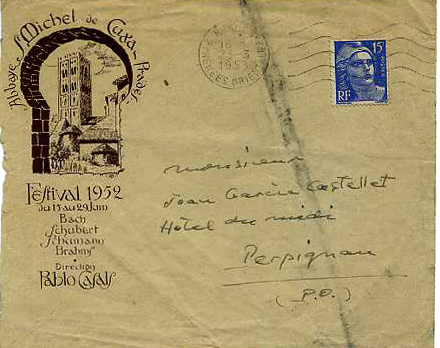 Abbaye St Michel de Cuxa - Prades
Festival 1952
du 15 au 29 Juin
Bach
Schubert
Schumann
Brahms
Direction
Pablo Casals
15
RF
monsieur
Joan Garcia Castellet
Hôtel du midi
Perpignan
(P.O.)